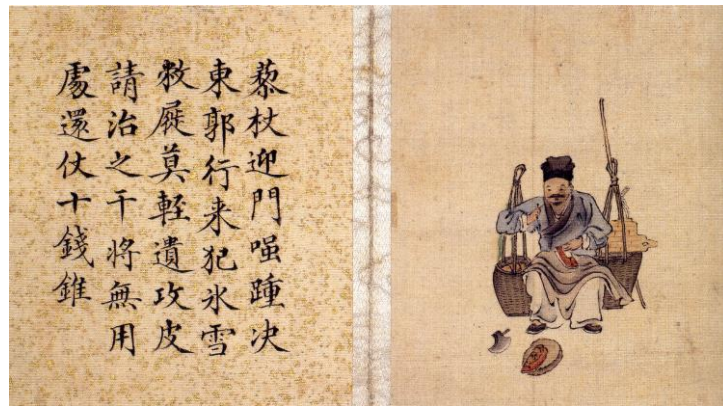 藜杖迎門嗤踵决
東郭行来犯氷雪
敝屣莫輕遺攻皮
請治之干将無用
處還仗十錢錐